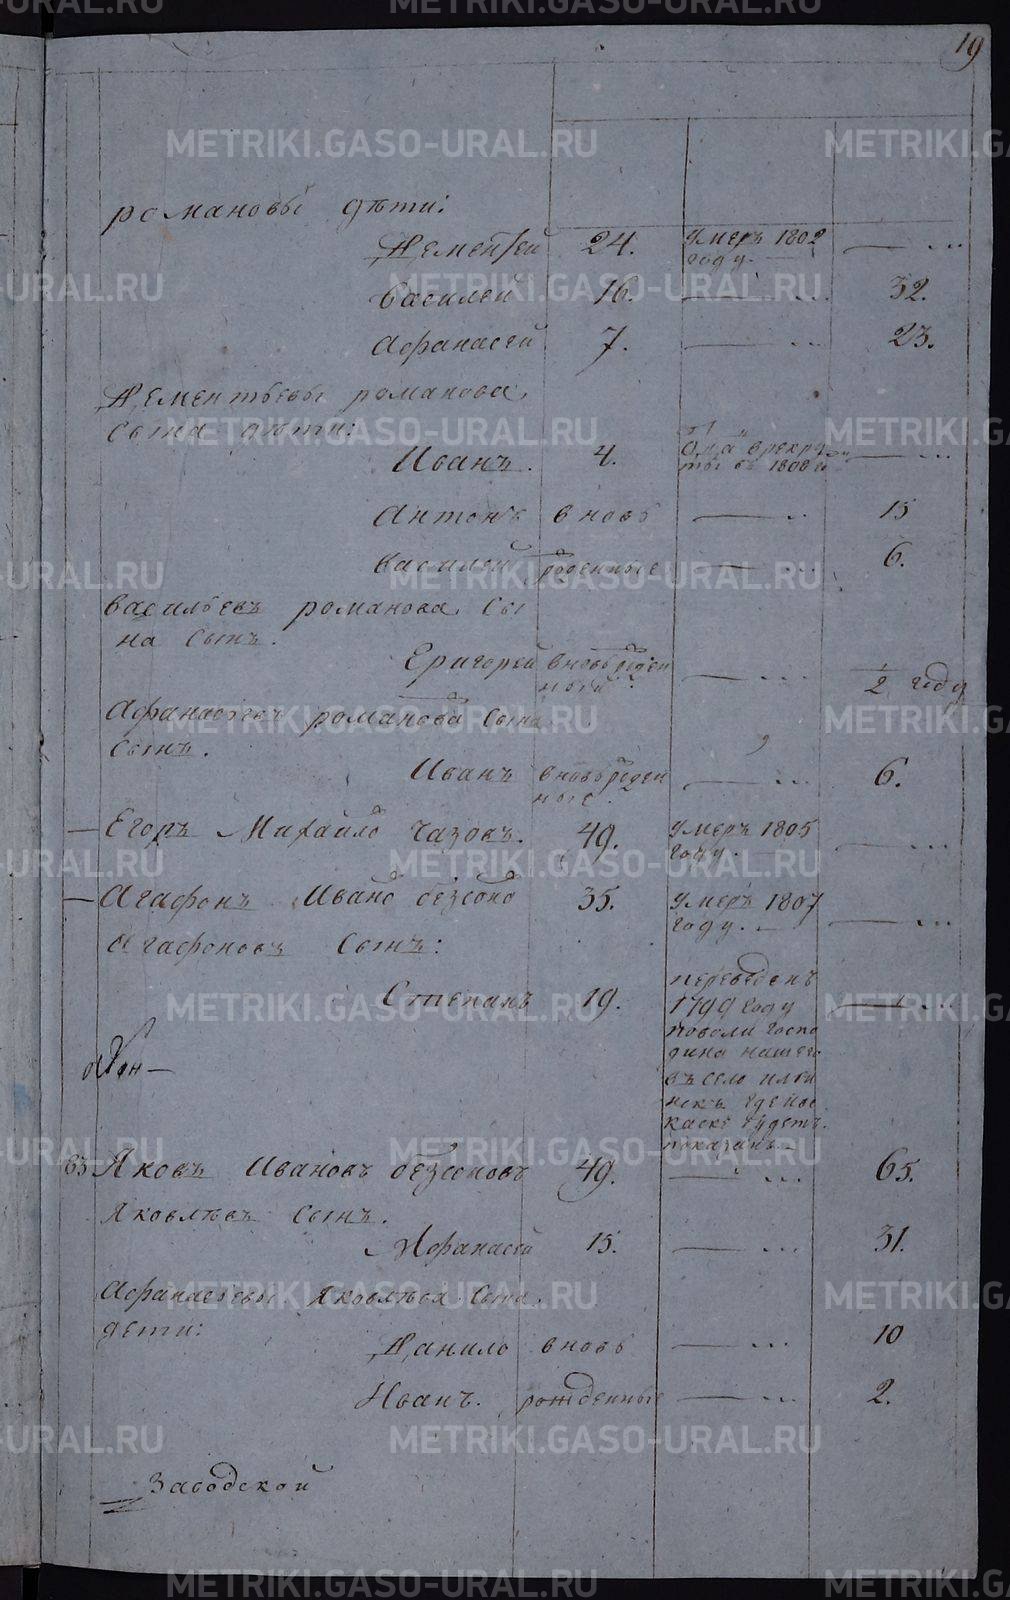 19
романовы дѣти:
Дементей 24. умеръ 1802 году. — ...
Василей 16. — ... 32.
Афанасей 7. — ... 23.
Дементьевы романова
сына дѣти:
Иванъ. 4. рекру
ты въ 1808 — ...
Антонъ вновь — ... 15
Василей роденные — ... 6.
васильевъ романова сы
на сынъ.
Григорей вновь роден
ной — ... 1/2 году
Афанасьевъ романова сына
сынъ.
Иванъ вновь роден
ные. — ... 6.
— Егоръ Михайло Чазовъ. 49. умеръ 1805
году. — ...
— Агафонъ Ивано безсоно 35. умеръ 1807
году. — ...
Агафоновъ сынъ:
Степанъ 19. переведенъ
1799 году
поволи госпо
дина нашего
въ село ильи
нскъ где по
каске будетъ
показанъ — ...
65 Яковъ Ивановъ безсоновъ 49. — ... 65.
Яковлѣвъ сынъ.
Афанасей 15. — ... 31.
Афанасьевы Яковлѣва сына
дети:
Данило вновь — ... 10
Иванъ. рожденные — ... 2.
Заводской
METRIKI.GASO-URAL.RU